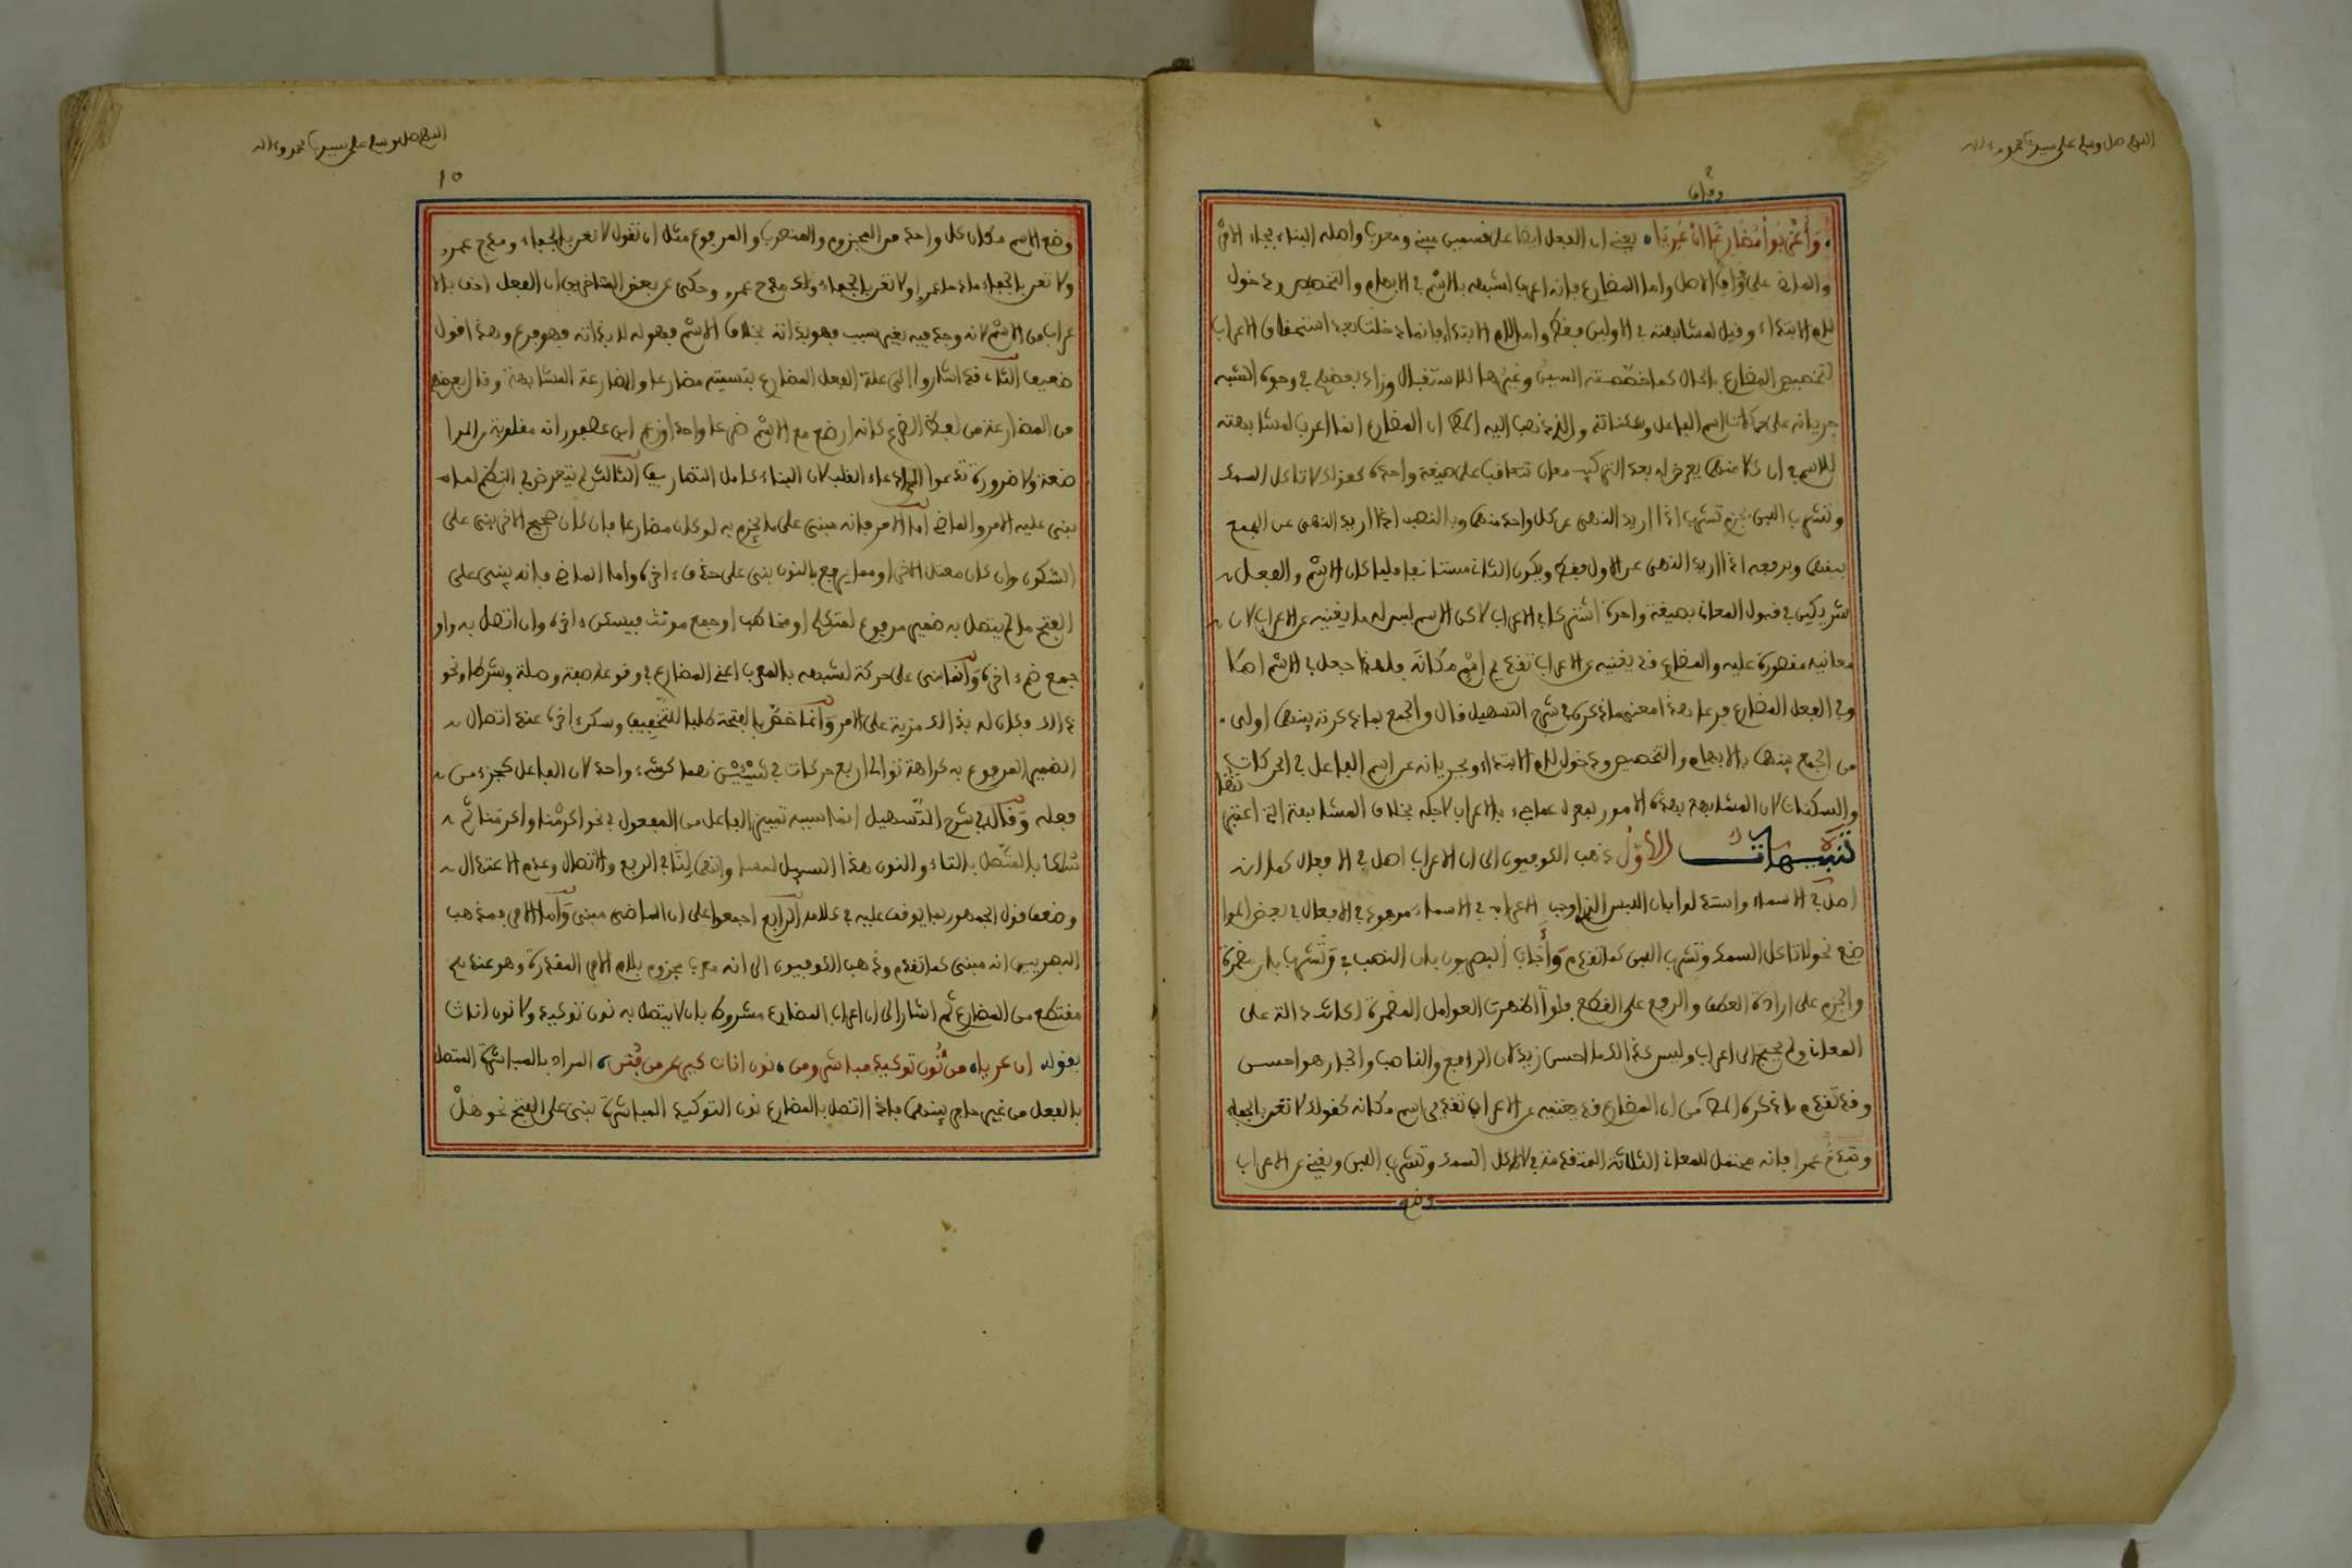 اللهم صل وسلم على سيدنا محمد وءاله
وأعربوا مضارعا ان عريا يعني ان الفعل ايضا على قسمين مبني ومعرب واصله البناء فجاء الامر
والماضي على وفاق الاصل واما المضارع فإنه اعرب لشبهه بالاسم في الابهام والتخصيص ودخول
لام الابتداء وقيل لمشابهته في الاولين فقط واما لام الابتداء فإنما دخلت بعد استحقاق الاعراب
لتخصيص المضارع بالحال كما خصصته السين وغيرها للاستقبال وزاد بعضهم في وجوه الشبه
جريانه على حركات اسم الفاعل وسكناته والذي ذهب اليه المص ان المضارع انما اعرب لمشابهته
للاسم في ان كلا منهما يعرض له بعد التركيب معان تتعاقب على صيغة واحدة كقولك لا تاكل السمك
وتشرب اللبن بجزم تشرب اذا اريد النهي عن كل واحد منهما وبالنصب اذا اريد النهي عن الجمع
بينهما وبرفعه اذا اريد النهي عن الاول فقط ويكون الثاني مستانفا فلما كان الاسم والفعل
شريكين في قبول المعاني بصيغة واحدة اشتركا في الاعراب لاكن الاسم ليس له ما يغنيه عن الاعراب لان
معانيه مقصورة عليه والمضارع قد يغنيه عن الاعراب تقديم اسم مكانه فلهذا جعل في الاسم اصلا
وفي الفعل المضارع فرعا هذا معنى ما ذكره في شرح التسهيل قال والجمع بما ذكرته بينهما اولى
من الجمع بينهما بالابهام والتخصيص ودخول لام الابتداء وبجريانه عن اسم الفاعل في الحركات
والسكنات لان المشابهة بهذه الامور بمعزل عما جيء بالاعراب لاجله بخلاف المشابهة التي اعتبرتها
تنبيهات الاول ذهب الكوفيون الى ان الاعراب اصل في الافعال كما انه
اصل في الاسماء واستدلوا بان اللبس الذي اوجب الاعراب في الاسماء موجود في الافعال في بعض الموا
ضع نحو لا تاكل السمك وتشرب اللبن كما تقدم وأجاب البصريون بان النصب في وتشرب بان مضمرة
والجزم على ارادة العطف والرفع على القطع فلو أظهرت العوامل المضمرة لكانت دالة على
المعاني ولم يحتج الى اعراب وليس كذلك ما احسن زيد لان الرافع والناصب والجار هو احسن
وقد تقدم ما ذكره المص من ان المضارع قد يغنيه عن الاعراب تقديم اسم مكانه كقولك لا تعن بالجفاء
وتمدح عمرا فإنه محتمل للمعاني الثلاثة المتقدمة في لا تاكل السمك وتشرب اللبن ويغني عن الاعراب
وضع
اللهم صل وسلم على سيدنا محمد وءاله
10
وضع الاسم مكان كل واحد من المجزوم والمنصوب والمرفوع مثل ان تقول لا تعن بالجفاء ومدح عمرو
ولا تعن بالجفاء مادحا عمرا ولا تعن بالجفاء ولك مدح عمرو وحكى عن بعض المتاخرين ان الفعل احق بالا
عراب من الاسم لانه وجد فيه بغير سبب فهو بذاته بخلاف الاسم فهو له لا بذاته فهو فرع وهذا قول
ضعيف الثاني قد اشاروا الى علة الفعل المضارع بتسميته مضارعا والمضارعة المشابهة وقال بعضهم
من المضارعة من لفظ الضرع كانه ارضع مع الاسم ضرعا واحدا وزعم ابن عصفور انه مقلوبة من المرا
ضعة ولا ضرورة تدعو الى ادعاء القلب لان البناء كامل التصاريف الثالث لم يتعرض في النظم لما
يبنى عليه الامر والماضي اما الامر فإنه مبني على ما يجزم به لو كان مضارعا فإن كان صحيح الاخر بني على
السكون وإن كان معتل الاخر او مما يرفع بالنون بني على حذف ءاخره واما الماضي فإنه يبنى على
الفتح ما لم يتصل به ضمير مرفوع لمتكلم او مخاطب او جمع مونث فيسكن ءاخره وان اتصل به واو
جمع ضم ءاخره وانما بني على حركة لشبهه بالمعرب اعني المضارع في وقوعه صفة وصلة وشرطا ونحو
ذلك فكان له بذلك مزية على الامر وانما خص بالفتحة طلبا للتخفيف وسكن ءاخره عند اتصال
الضمير المرفوع به كراهة توالي اربع حركات في شيئين هما كشيء واحد لان الفاعل كجزء من
فعله وقال في شرح التسهيل انما سببه تمييز الفاعل من المفعول في نحو اكرمنا واكرمنا ثم
بالمتصل بالتاء والنون هذا السبيل وانهما لنا في الرفع والاتصال وعدم الاعتلال
وضعف قول الجمهور بما يوقف عليه في كلامه الرابع اجمعوا على ان الماضي مبني وأما الامر فمذهب
البصريين انه مبني كما تقدم وذهب الكوفيون الى انه معرب مجزوم بلام الامر المقدرة وهو عندهم
مقتطع من المضارع ثم اشار الى ان اعراب المضارع مشروط بان لا يتصل به نون توكيد ولا نون اناث
بقوله ان عريا من نون توكيد مباشر ومن نون اناث كيرعن من فتن المراد بالمباشرة المتصل
بالفعل من غير حاجز بينهما فإذا اتصل بالمضارع نون التوكيد المباشرة بني على الفتح نحو هل